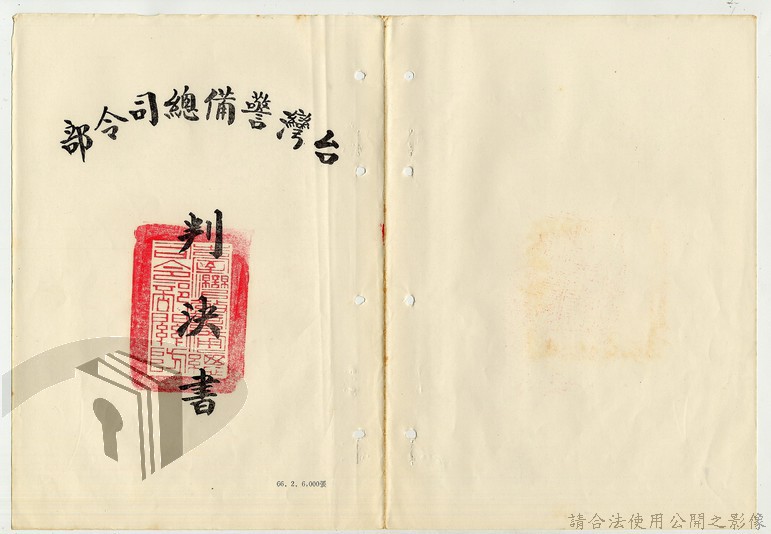 台灣警備總司令部
判決書
66. 2. 6.000張
請合法使用公開之影像